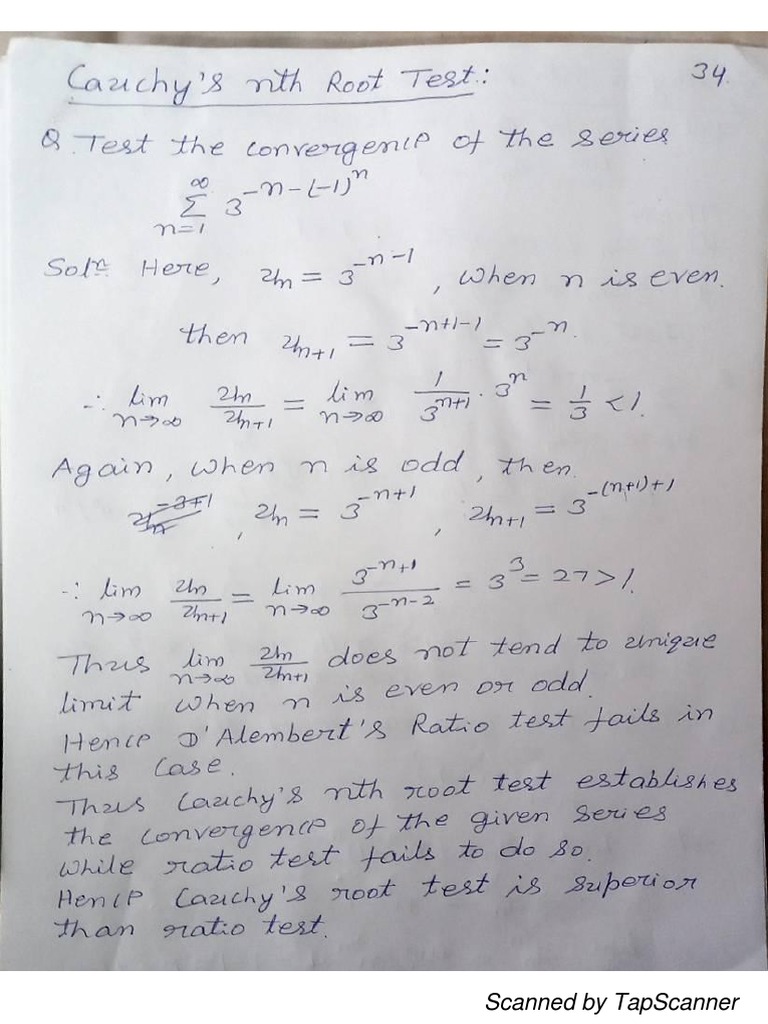 Cauchy's nth Root Test: 34.
Q. Test the convergence of the series
∞
Σ 3^{-n-(-1)^n}
n=1
Solⁿ. Here, u_n = 3^{-n-1}, when n is even.
then u_{n+1} = 3^{-n+1-1} = 3^{-n}.
∴ lim_{n→∞} u_n/u_{n+1} = lim_{n→∞} 1/3^{n+1} · 3^n = 1/3 < 1.
Again, when n is odd, then
, u_n = 3^{-n+1}, u_{n+1} = 3^{-(n+1)+1}
∴ lim_{n→∞} u_n/u_{n+1} = lim_{n→∞} 3^{-n+1}/3^{-n-2} = 3^3 = 27 > 1.
Thus lim_{n→∞} u_n/u_{n+1} does not tend to unique
limit when n is even or odd.
Hence D'Alembert's Ratio test fails in
this case.
Thus Cauchy's nth root test establishes
the convergence of the given series
while ratio test fails to do so.
Hence Cauchy's root test is superior
than ratio test.
Scanned by TapScanner